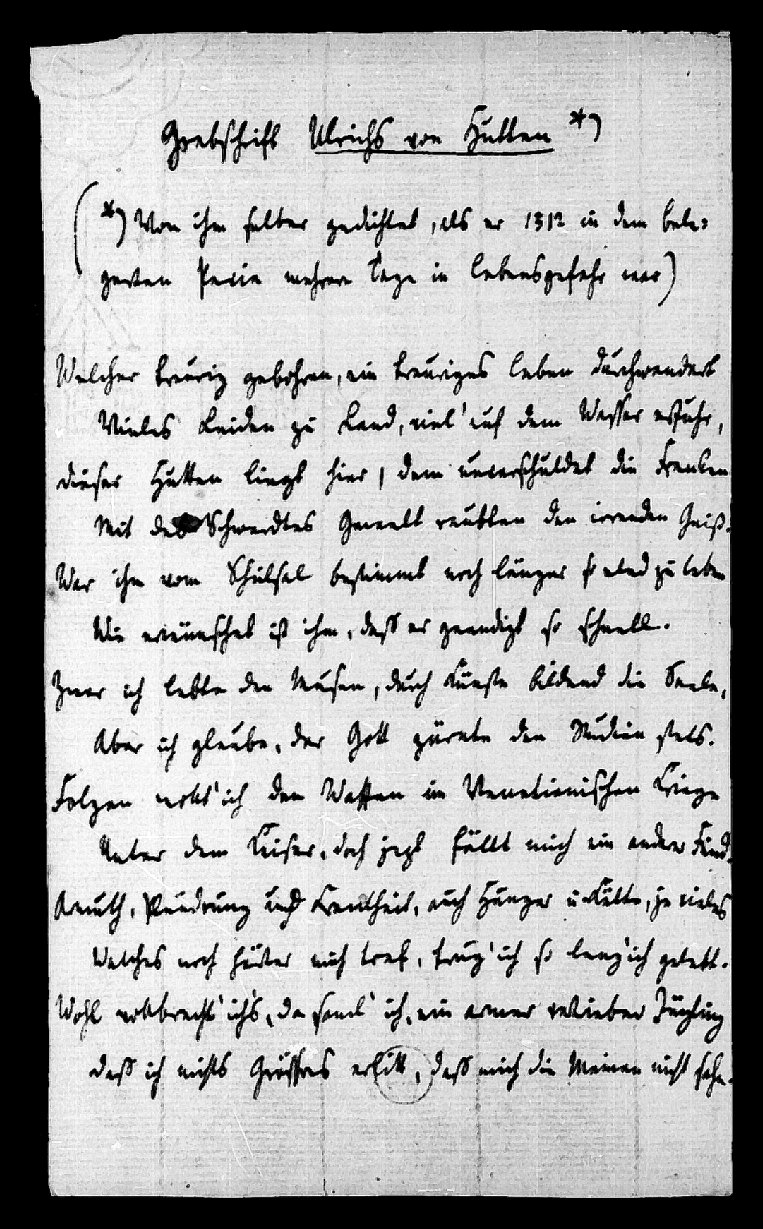 Grabschrift Ulrichs von Hutten *)
(*) Von ihm selber gedichtet, als er 1512 in dem bela-
gerten Pavia mehrere Tage in Lebensgefahr war)
Welcher traurig gebohren, ein trauriges Leben durchwandert
Vieles Leiden zu Land, viel' auf dem Wasser erfuhr,
Dieser Hutten liegt hier, dem unverschuldet die Franken
Mit des Schwerdtes Gewalt raubten den irrenden Geist.
War ihm vom Schiksal bestimmt noch länger elend zu leben
Wie erwünschet ist ihm, daß er geendigt so schnell.
Zwar ich lebte den Musen, durch Künste bildend die Seele,
Aber ich glaube, der Gott zürnte den Studien stets.
Folgen ich den Waffen im Venetianischen Kriege
Unter dem Kaiser, doch jezt fällt mich ein andrer Feind.
Armuth, Plündrung und Krankheit, auch Hunger u Kälte, ja vieles
Welches noch härter mich traf, trug' ich so lang' ich gelebt.
Wohl vollbracht' ich's, da sank' ich, ein armer Jüngling
Daß ich nichts Größres erlitt, daß mich die Meinen nicht sahn.